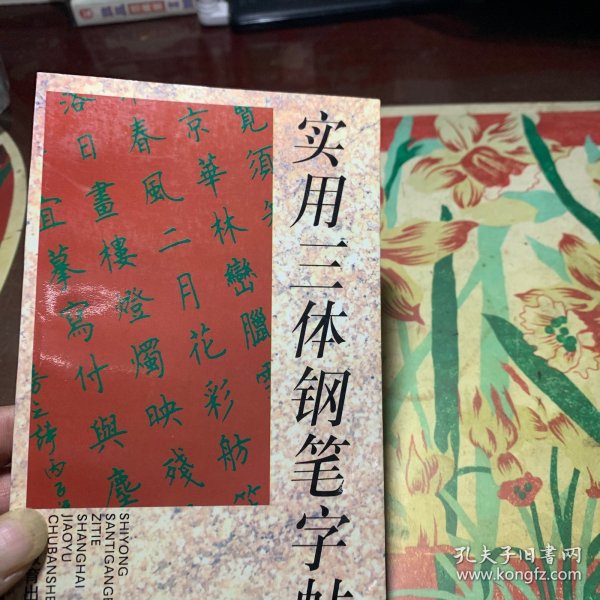 实用三体钢笔字帖
覓須
京華林巒臘
春風二月花彩舫
落日畫樓燈燭映殘
宜摹寫付與塵
丙子
SHIYONG
SANTIGANGB
ZITIE
SHANGHAI
JIAOYU
CHUBANSHE
孔夫子旧书网
www.kongfz.com